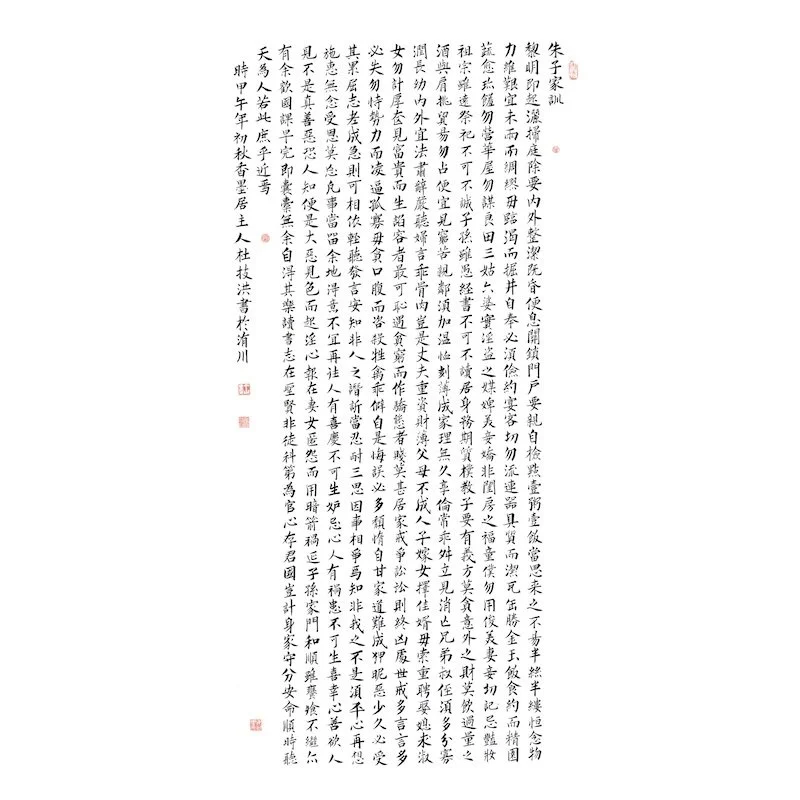 朱子家訓
黎明即起灑掃庭除要內外整潔既昏便息關鎖門戶要親自檢點壹粥壹飯當思來之不易半絲半縷恒念物
力維艱宜未雨而綢繆毋臨渴而掘井自奉必須儉約宴客切勿流連器具質而潔瓦缶勝金玉飯食約而精園
蔬愈珍饈勿營華屋勿謀良田三姑六婆實淫盜之媒婢美妾嬌非閨房之福童僕勿用俊美妻妾切記忌豔妝
祖宗雖遠祭祀不可不誠子孫雖愚經書不可不讀居身務期質樸教子要有義方莫貪意外之財莫飲過量之
酒與肩挑貿易勿占便宜見窮苦親鄰須加溫恤刻薄成家理無久享倫常乖舛立見消亡兄弟叔侄須多分寡
潤長幼內外宜法肅辭嚴聽婦言乖骨肉豈是丈夫重資財薄父母不成人子嫁女擇佳婿毋索重聘娶媳求淑
女勿計厚奩見富貴而生諂容者最可恥遇貧窮而作驕態者賤莫甚居家戒爭訟訟則終凶處世戒多言言多
必失勿恃勢力而凌逼孤寡毋貪口腹而恣殺牲禽乖僻自是悔誤必多頹惰自甘家道難成狎昵惡少久必受
其累屈志老成急則可相依輕聽發言安知非人之譖訴當忍耐三思因事相爭焉知非我之不是須平心再想
施惠無念受恩莫忘凡事當留余地得意不宜再往人有喜慶不可生妒忌心人有禍患不可生喜幸心善欲人
見不是真善惡恐人知便是大惡見色而起淫心報在妻女匿怨而用暗箭禍延子孫家門和順雖饔飧不繼亦
有余歡國課早完即囊橐無余自得其樂讀書志在聖賢非徒科第為官心存君國豈計身家守分安命順時聽
天為人若此庶乎近焉
時甲午年初秋香墨居主人杜技洪書於洧川